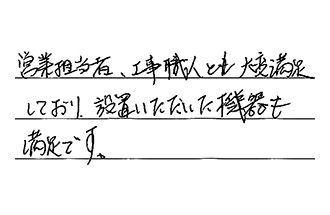 営業担当者、工事職人とも大変満足
しており、設置いただいた機器も
満足です。